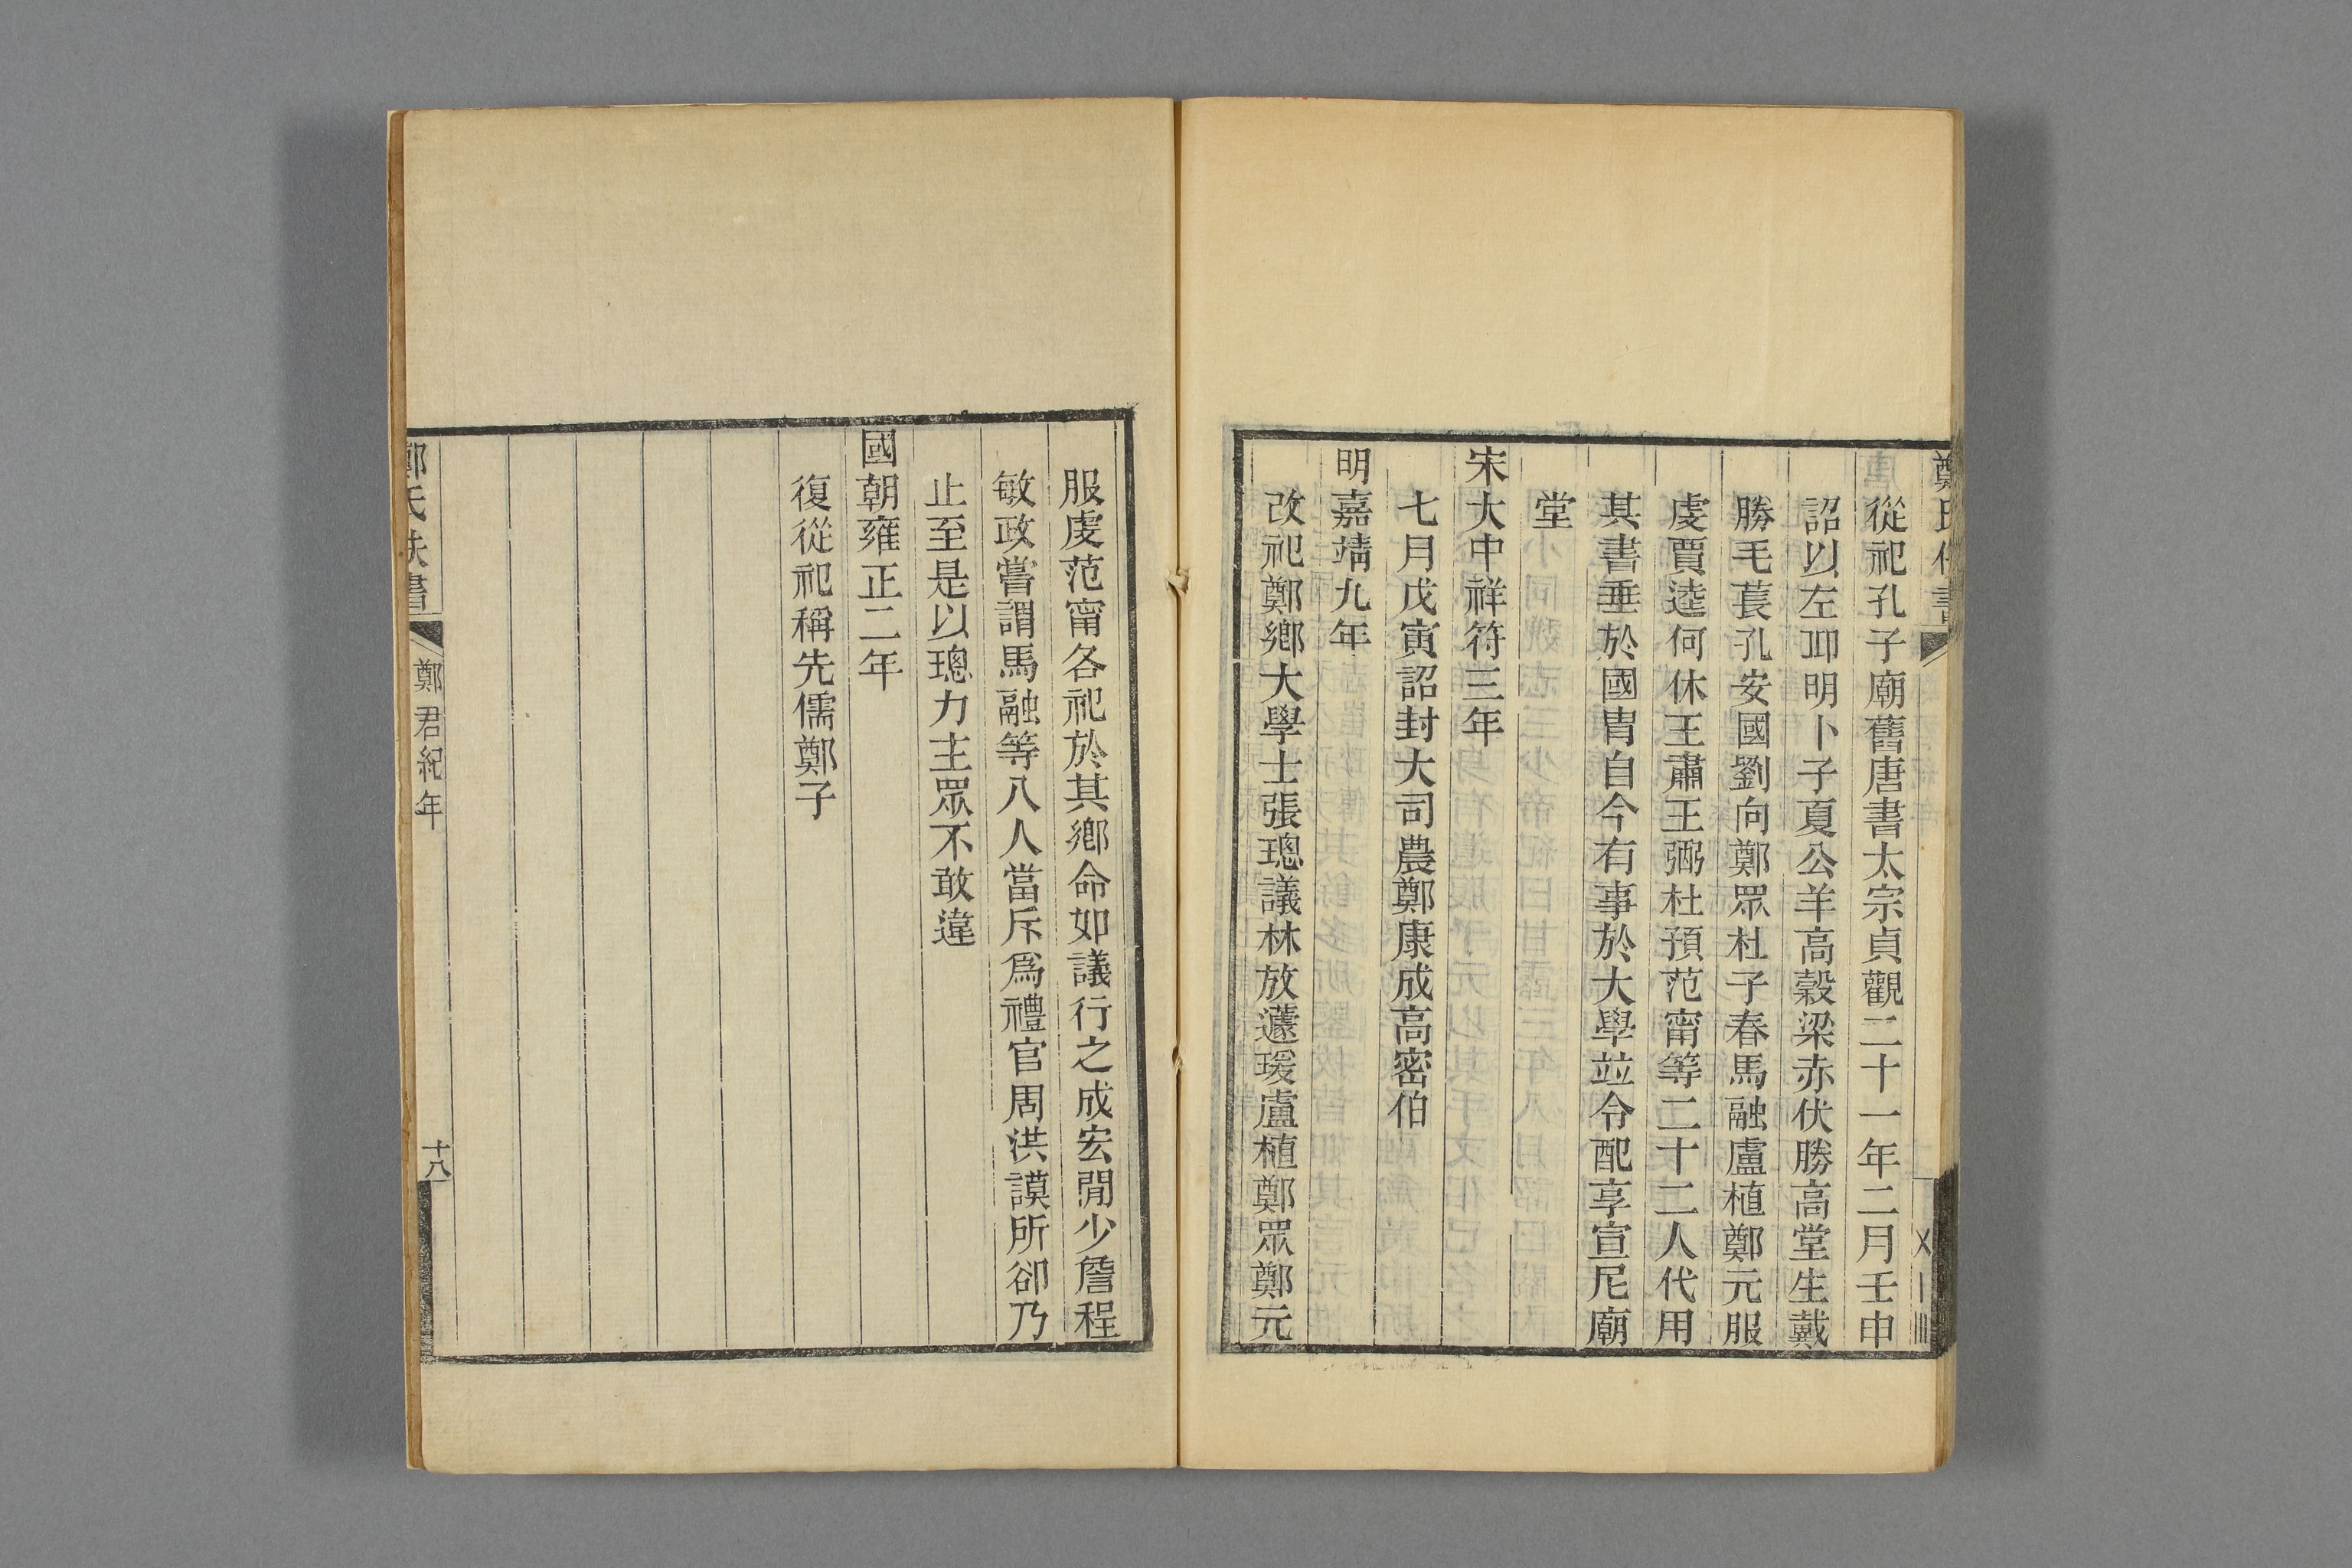 從祀孔子廟舊唐書太宗貞觀二十一年二月壬申
詔以左邱明卜子夏公羊高穀梁赤伏勝高堂生戴
勝毛萇孔安國劉向鄭眾杜子春馬融盧植鄭元服
虔賈逵何休王肅王弼杜預范甯等二十二人代用
其書垂於國冑自今有事於大學並令配享宣尼廟
堂
宋大中祥符三年
七月戊寅詔封大司農鄭康成高密伯
明嘉靖九年
改祀鄭鄉大學士張璁議林放蘧瑗盧植鄭眾鄭元
服虔范甯各祀於其鄉命如議行之成宏閒少詹程
敏政嘗謂馬融等八人當斥爲禮官周洪謨所卻乃
止至是以璁力主眾不敢違
國朝雍正二年
復從祀稱先儒鄭子
鄭氏佚書
鄭君紀年
十八